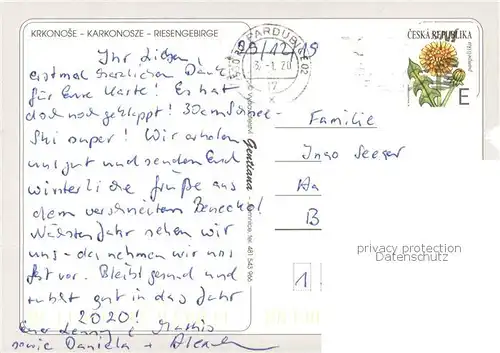 KRKONOŠE - KARKONOSZE - RIESENGEBIRGE
29/12/19
Ihr Lieben,
erstmal herzlichen Dank
für Eure Karte! Es hat
doch noch geklappt! 30cm Schnee -
Ski super! Wir erholen
uns gut und senden Euch
winterliche Grüße aus
dem verschneiten Benecko!
Nächstes Jahr sehen wir
uns - das nehmen wir uns
fest vor. Bleibt gesund und
rutscht gut in das Jahr
2020!
Mathis
sowie Daniela +
Gentiana
tel. 481 543 966
PARDUBICE 02
3.-1. 20
17
ČESKÁ REPUBLIKA
E
Familie
Ingo Seeger
Aa
B
1
privacy protection
Datenschutz